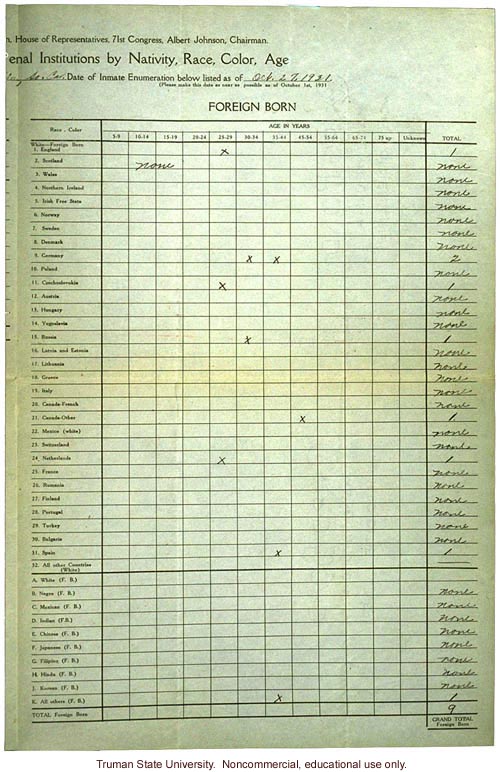 n. House of Representatives, 71st Congress, Albert Johnson, Chairman.
enal Institutions by Nativity, Race, Color, Age
So. Car. Date of Inmate Enumeration below listed as of Oct. 27, 1931.
(Please make this date as near as possible as of October 1st, 1931
FOREIGN BORN
Race - Color AGE IN YEARS TOTAL
5-9 10-14 15-19 20-24 25-29 30-34 35-44 45-54 55-64 65-74 75 up Unknown
White—Foreign Born
1. England x 1
2. Scotland none none
3. Wales none
4. Northern Ireland none
5. Irish Free State none
6. Norway none
7. Sweden none
8. Denmark none
9. Germany x x 2
10. Poland none
11. Czechoslovakia x 1
12. Austria none
13. Hungary none
14. Yugoslavia none
15. Russia x 1
16. Latvia and Estonia none
17. Lithuania none
18. Greece none
19. Italy none
20. Canada-French none
21. Canada-Other x 1
22. Mexico (white) none
23. Switzerland none
24. Netherlands x 1
25. France none
26. Rumania none
27. Finland none
28. Portugal none
29. Turkey none
30. Bulgaria none
31. Spain x 1
32. All other Countries (White)
A. White (F. B.)
B. Negro (F. B.) none
C. Mexican (F. B.) none
D. Indian (F.B.) none
E. Chinese (F. B.) none
F. Japanese (F. B.) none
G. Filipino (F. B.) none
H. Hindu (F. B.) none
J. Korean (F. B.) none
K. All others (F. B.) x 1
TOTAL Foreign Born 9
GRAND TOTAL
Foreign Born
Truman State University. Noncommercial, educational use only.